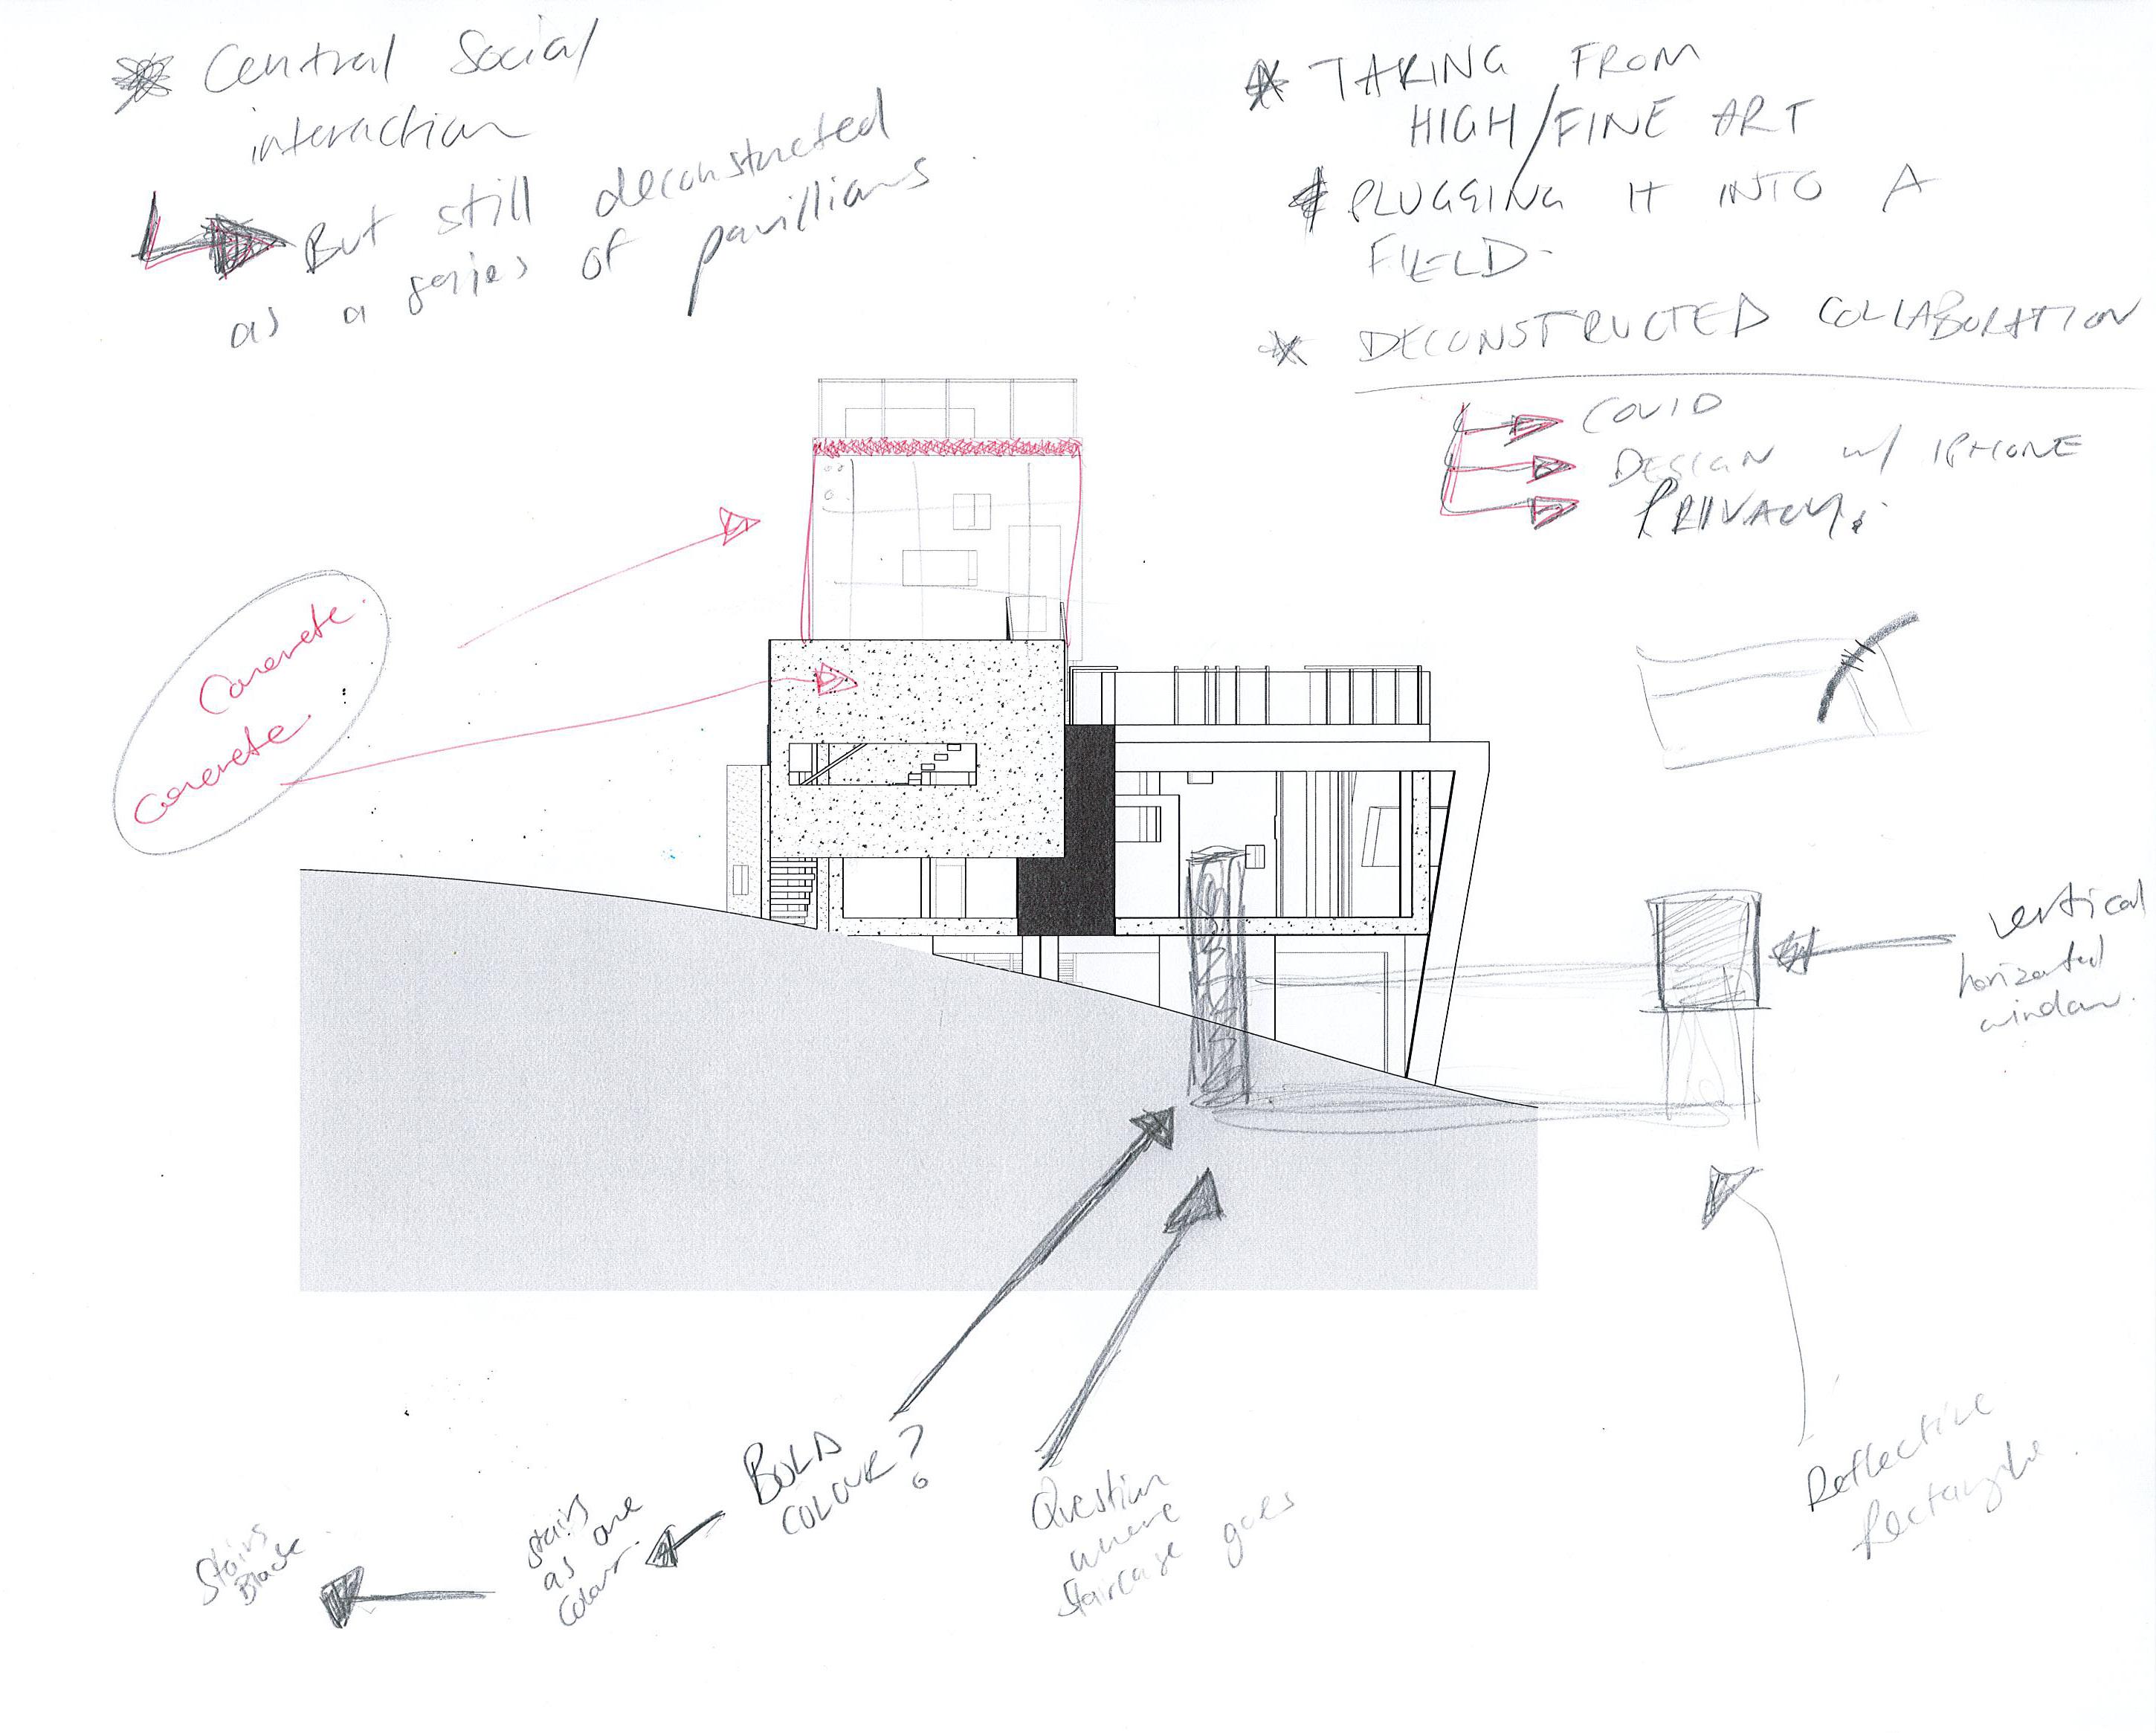 Central Social
interaction
But still deconstructed
as a series of pavillians.
TAKING FROM
HIGH/FINE ART
PLUGGING IT INTO A
FIELD-
DECONSTRUCTED COLLABORATION
COVID
DESIGN w/ IPHONE
PRIVACY
Concrete.
Concrete.
vertical
horizontal
window.
BOLD
COLOUR?
stairs
as one
colour.
Stairs
Black
Question
where
staircase goes
Reflective
Rectangle.